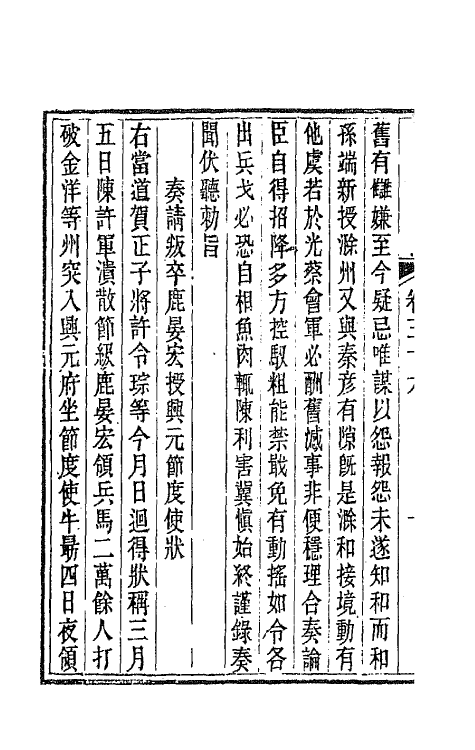 卷三十九
舊有讎嫌至今疑忌唯謀以怨報怨未遂知和而和
孫端新授滁州又與秦彦有隙旣是滁和接境動有
他虞若於光蔡會軍必酬舊憾事非便穩理合奏論
臣自得招降多方控馭粗能禁戢免有動摇如令各
出兵戈必恐自相魚肉輒陳利害冀愼始終謹錄奏
聞伏聽勅旨
奏請叛卒鹿晏宏授興元節度使狀
右當道賀正子將許令琮等今月日迴得狀稱三月
五日陳許軍潰散節級鹿晏宏領兵馬二萬餘人打
破金洋等州突入興元府坐節度使牛勗四日夜領